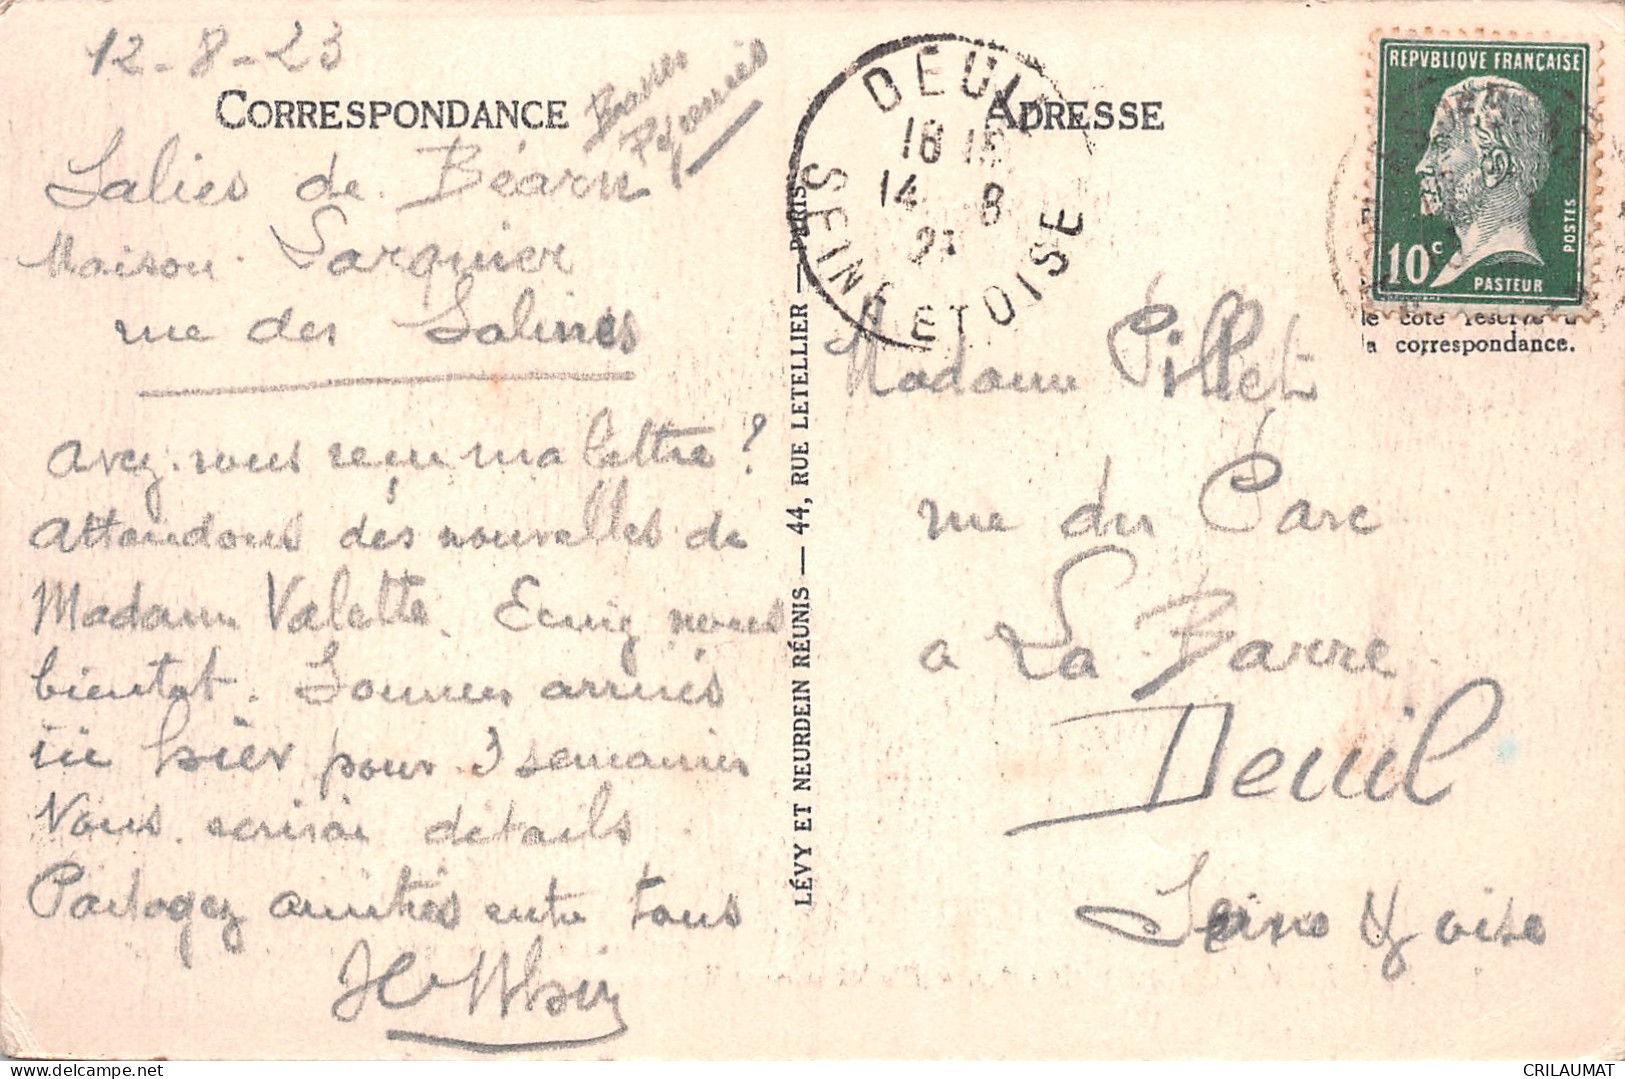 12-8-23
CORRESPONDANCE
Basses
Pyrénées
Salies de Béarn
Maison Larquier
rue des Salines
Avez-vous reçu ma lettre ?
Attendons des nouvelles de
Madame Valette. Ecrivez nous
bientot. Sommes arrivés
ici hier pour 3 semaines
Vous écrirai détails
Partagez amitiés entre tous
LÉVY ET NEURDEIN RÉUNIS — 44, RUE LETELLIER — PARIS
ADRESSE
DEUIL
18 15
14 8
23
SEINE ET OISE
REPVBLIQVE FRANÇAISE
10c
PASTEUR
POSTES
le côté réservé à
la correspondance.
Madame Pillet
rue du Parc
a La Barre
Deuil
Seine & oise
CRILAUMAT